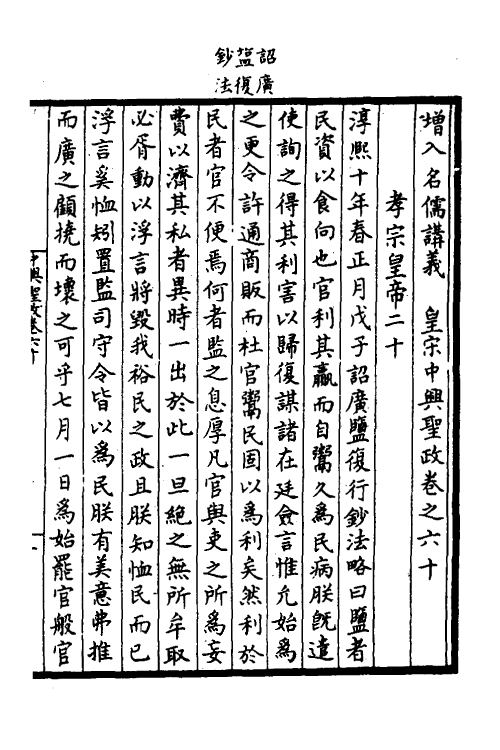 詔廣
鹽復
鈔法
增入名儒講義　皇宋中興聖政卷之六十
孝宗皇帝二十
淳熙十年春正月戊子詔廣鹽復行鈔法略曰鹽者
民資以食向也官利其贏而自鬻久爲民病朕既遣
使詢之得其利害以歸復謀諸在廷僉言惟允始爲
之更令許通商販而杜官鬻民固以爲利矣然利於
民者官不便焉何者監之息厚凡官與吏之所爲妄
費以濟其私者異時一出於此一旦絶之無所牟取
必胥動以浮言將毀我裕民之政且朕知恤民而已
浮言奚恤矧置監司守令皆以爲民朕有美意弗推
而廣之顧撓而壞之可乎七月一日爲始罷官般官
中興聖政卷六十
一